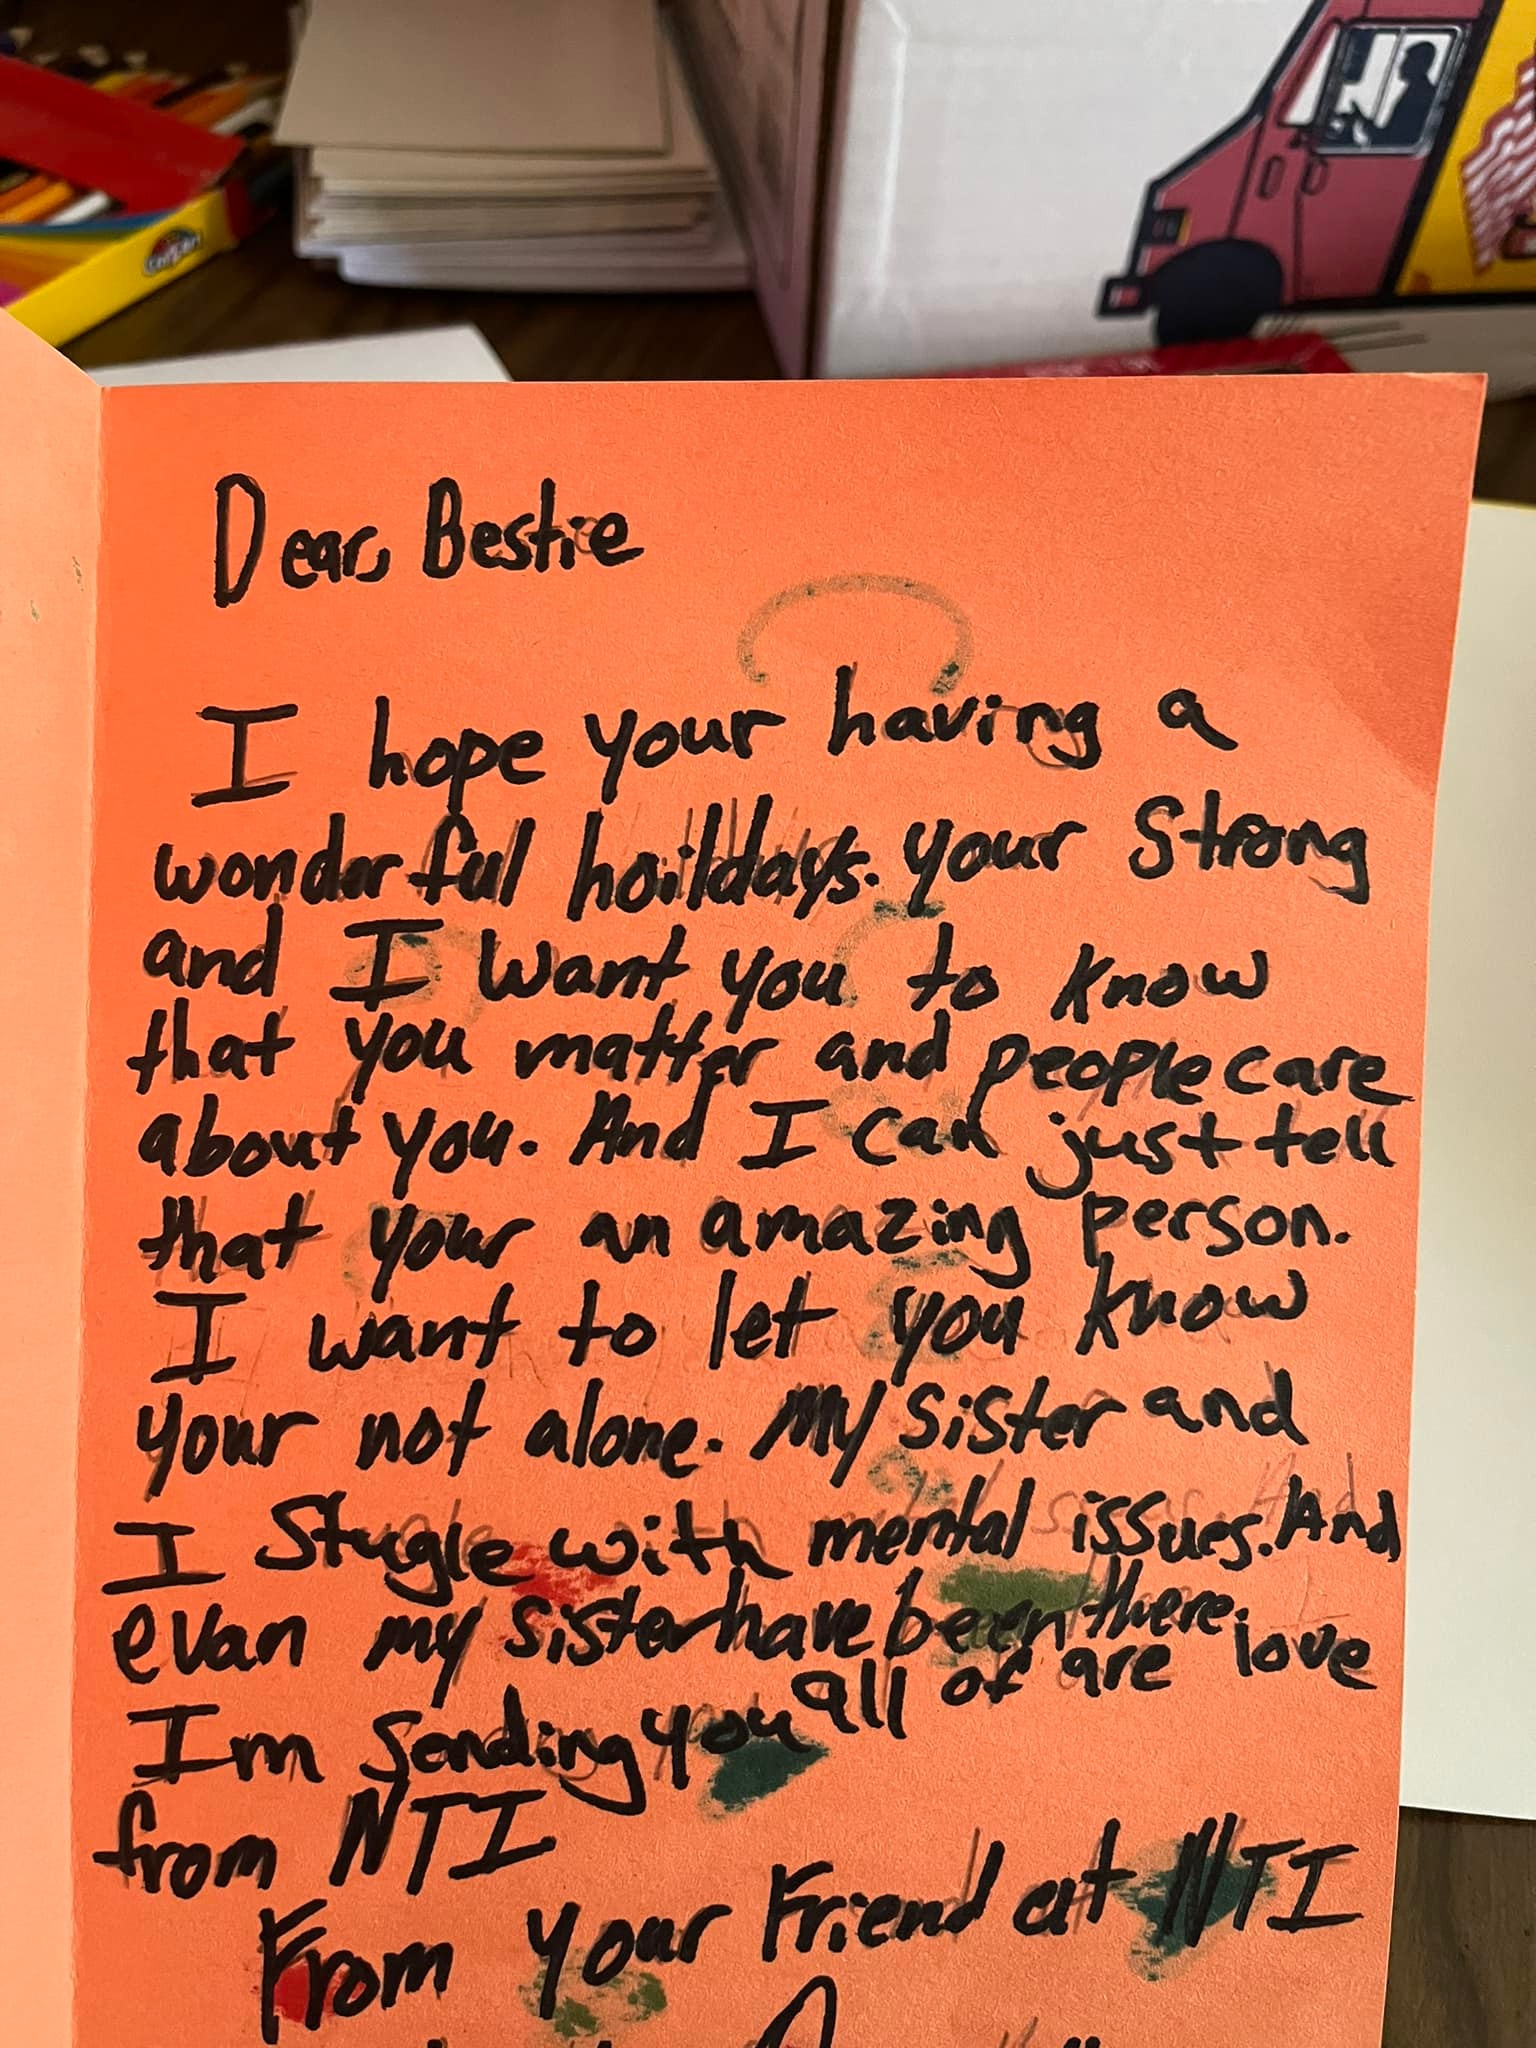 Dear, Bestie
I hope your having a
wonderful hoildays. your Strong
and I want you to know
that you matter and people care
about you. And I can just tell
that your an amazing person.
I want to let you know
your not alone. My sister and
I Stugle with mental issues. And
evan my sister have been there.
Im sending you all of are love
from NTI
From your Friend at NTI